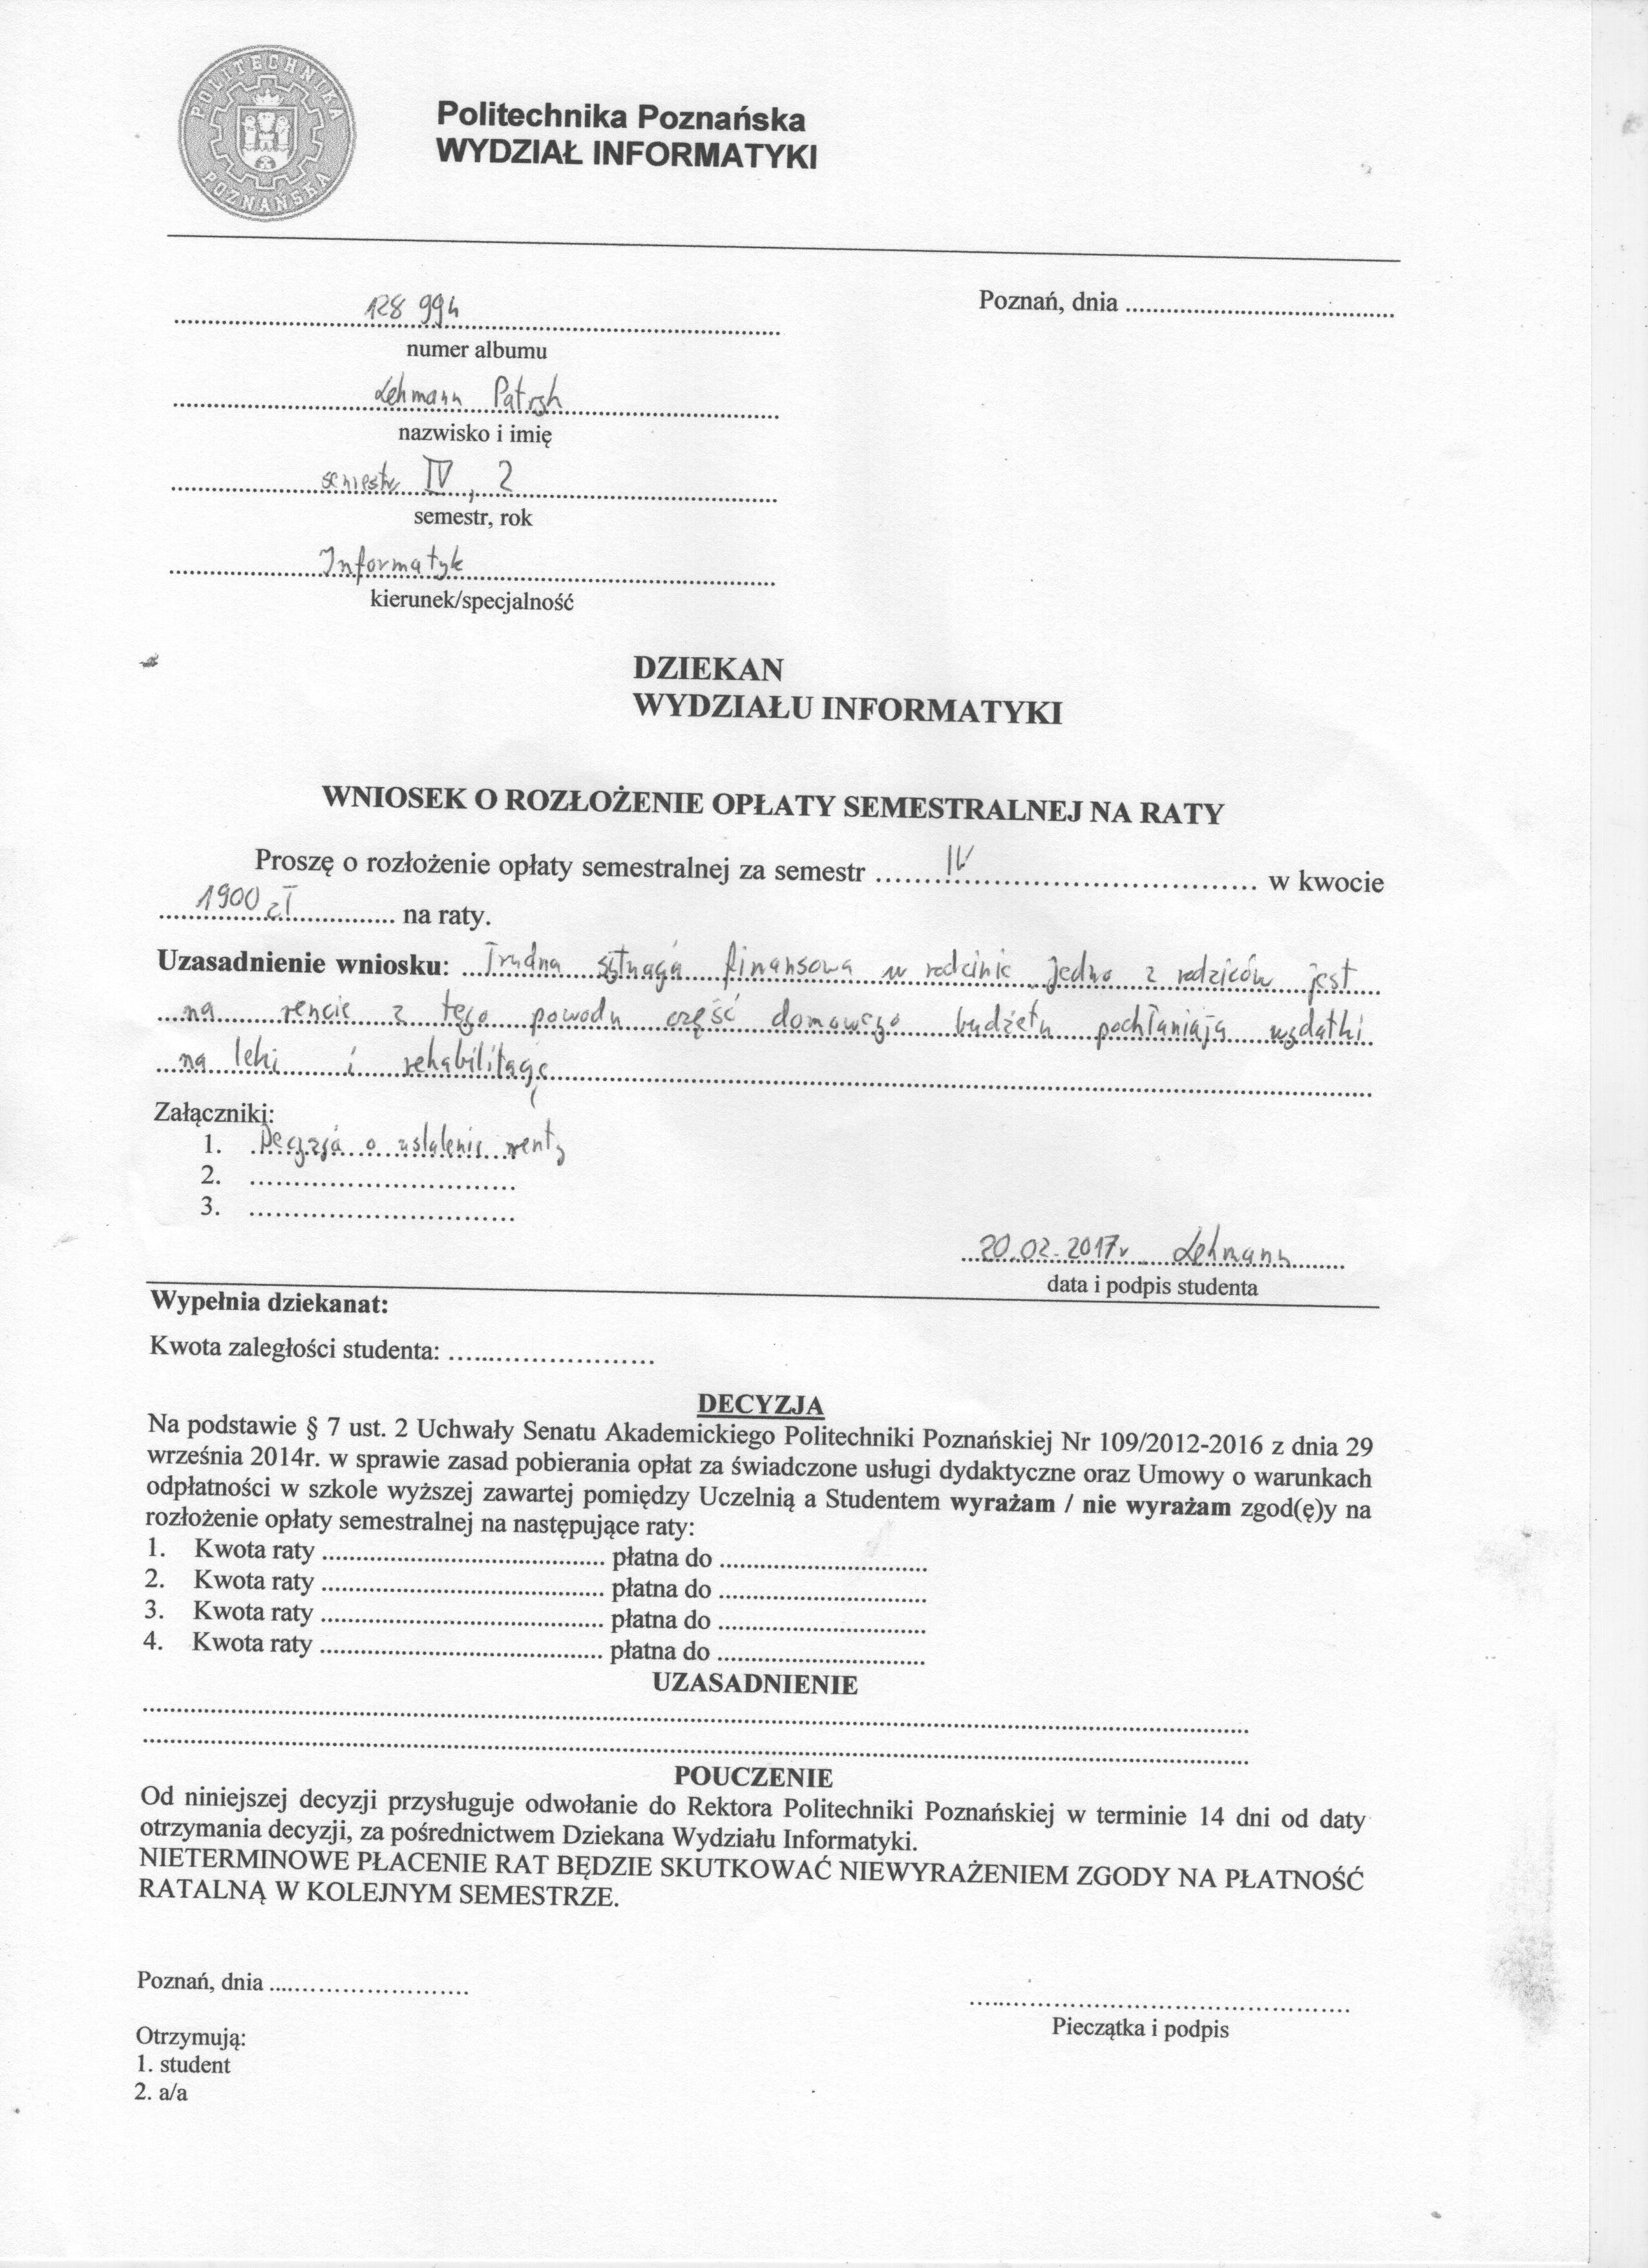 POLITECHNIKA POZNAŃSKA
Politechnika Poznańska
WYDZIAŁ INFORMATYKI
128 994
Poznań, dnia
numer albumu
Lehmann Patryk
nazwisko i imię
semestr IV, 2
semestr, rok
Informatyk
kierunek/specjalność
DZIEKAN
WYDZIAŁU INFORMATYKI
WNIOSEK O ROZŁOŻENIE OPŁATY SEMESTRALNEJ NA RATY
Proszę o rozłożenie opłaty semestralnej za semestr IV w kwocie
1900 zł na raty.
Uzasadnienie wniosku: Trudna sytuacja finansowa w rodzinie Jedno z rodziców jest
na rencie z tego powodu część domowego budżetu pochłaniają wydatki
na leki i rehabilitację
Załączniki:
1. Decyzja o ustalenie renty
2.
3.
20.02.2017r Lehmann
data i podpis studenta
Wypełnia dziekanat:
Kwota zaległości studenta:
DECYZJA
Na podstawie § 7 ust. 2 Uchwały Senatu Akademickiego Politechniki Poznańskiej Nr 109/2012-2016 z dnia 29
września 2014r. w sprawie zasad pobierania opłat za świadczone usługi dydaktyczne oraz Umowy o warunkach
odpłatności w szkole wyższej zawartej pomiędzy Uczelnią a Studentem wyrażam / nie wyrażam zgod(ę)y na
rozłożenie opłaty semestralnej na następujące raty:
1. Kwota raty płatna do
2. Kwota raty płatna do
3. Kwota raty płatna do
4. Kwota raty płatna do
UZASADNIENIE
POUCZENIE
Od niniejszej decyzji przysługuje odwołanie do Rektora Politechniki Poznańskiej w terminie 14 dni od daty
otrzymania decyzji, za pośrednictwem Dziekana Wydziału Informatyki.
NIETERMINOWE PŁACENIE RAT BĘDZIE SKUTKOWAĆ NIEWYRAŻENIEM ZGODY NA PŁATNOŚĆ
RATALNĄ W KOLEJNYM SEMESTRZE.
Poznań, dnia
Pieczątka i podpis
Otrzymują:
1. student
2. a/a